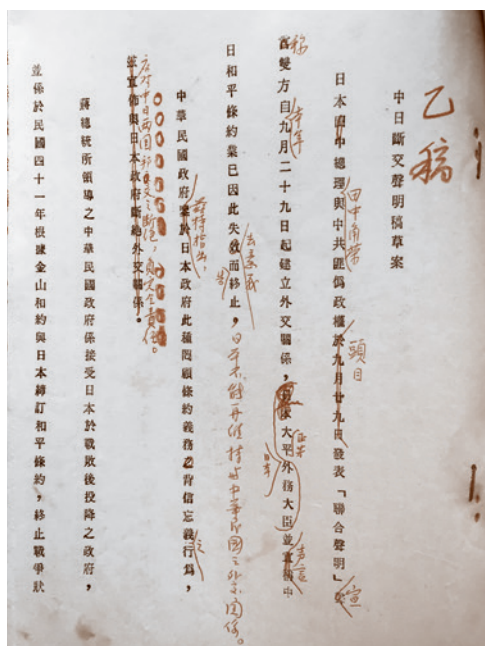 乙稿
中日斷交聲明稿草案
日本田中總理與中共匪偽政權於九月廿九日發表「聯合聲明」
田中角榮
頭目
宣
稱
雙方自九月二十九日起建立外交關係，大平外務大臣並宣稱中
聲言
日和平條約業已因此失效而終止，日本不能再維持與中華民國之外交關係。
去意義
中華民國政府鑒於日本政府此種罔顧條約義務之背信忘義行為，
茲特指出，
並宣佈與日本政府斷絕外交關係。
應對中日兩國邦交之斷絕，負完全責任。
蔣總統所領導之中華民國政府係接受日本於戰敗後投降之政府，
並係於民國四十一年根據金山和約與日本締訂和平條約，終止戰爭狀